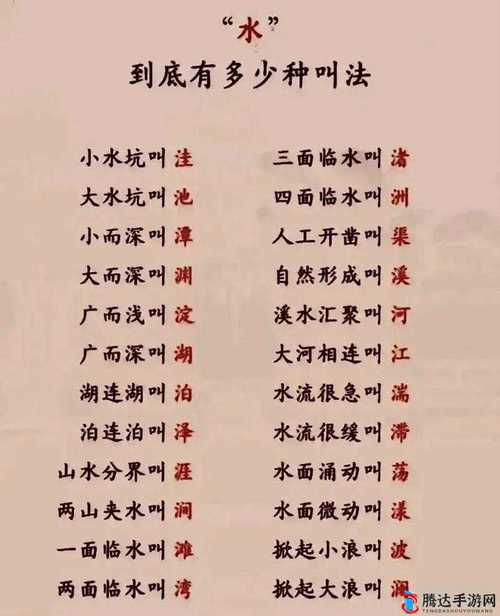 “水”
到底有多少种叫法
小水坑叫洼
大水坑叫池
小而深叫潭
大而深叫渊
广而浅叫淀
广而深叫湖
湖连湖叫泊
泊连泊叫泽
山水分界叫涯
两山夹水叫涧
一面临水叫滩
两面临水叫湾
三面临水叫渚
四面临水叫洲
人工开凿叫渠
自然形成叫溪
溪水汇聚叫河
大河相连叫江
水流很急叫湍
水流很缓叫滞
水面涌动叫荡
水面微动叫漾
掀起小浪叫波
掀起大浪叫澜
腾达手游网
TENGDASHOUYOUWANG